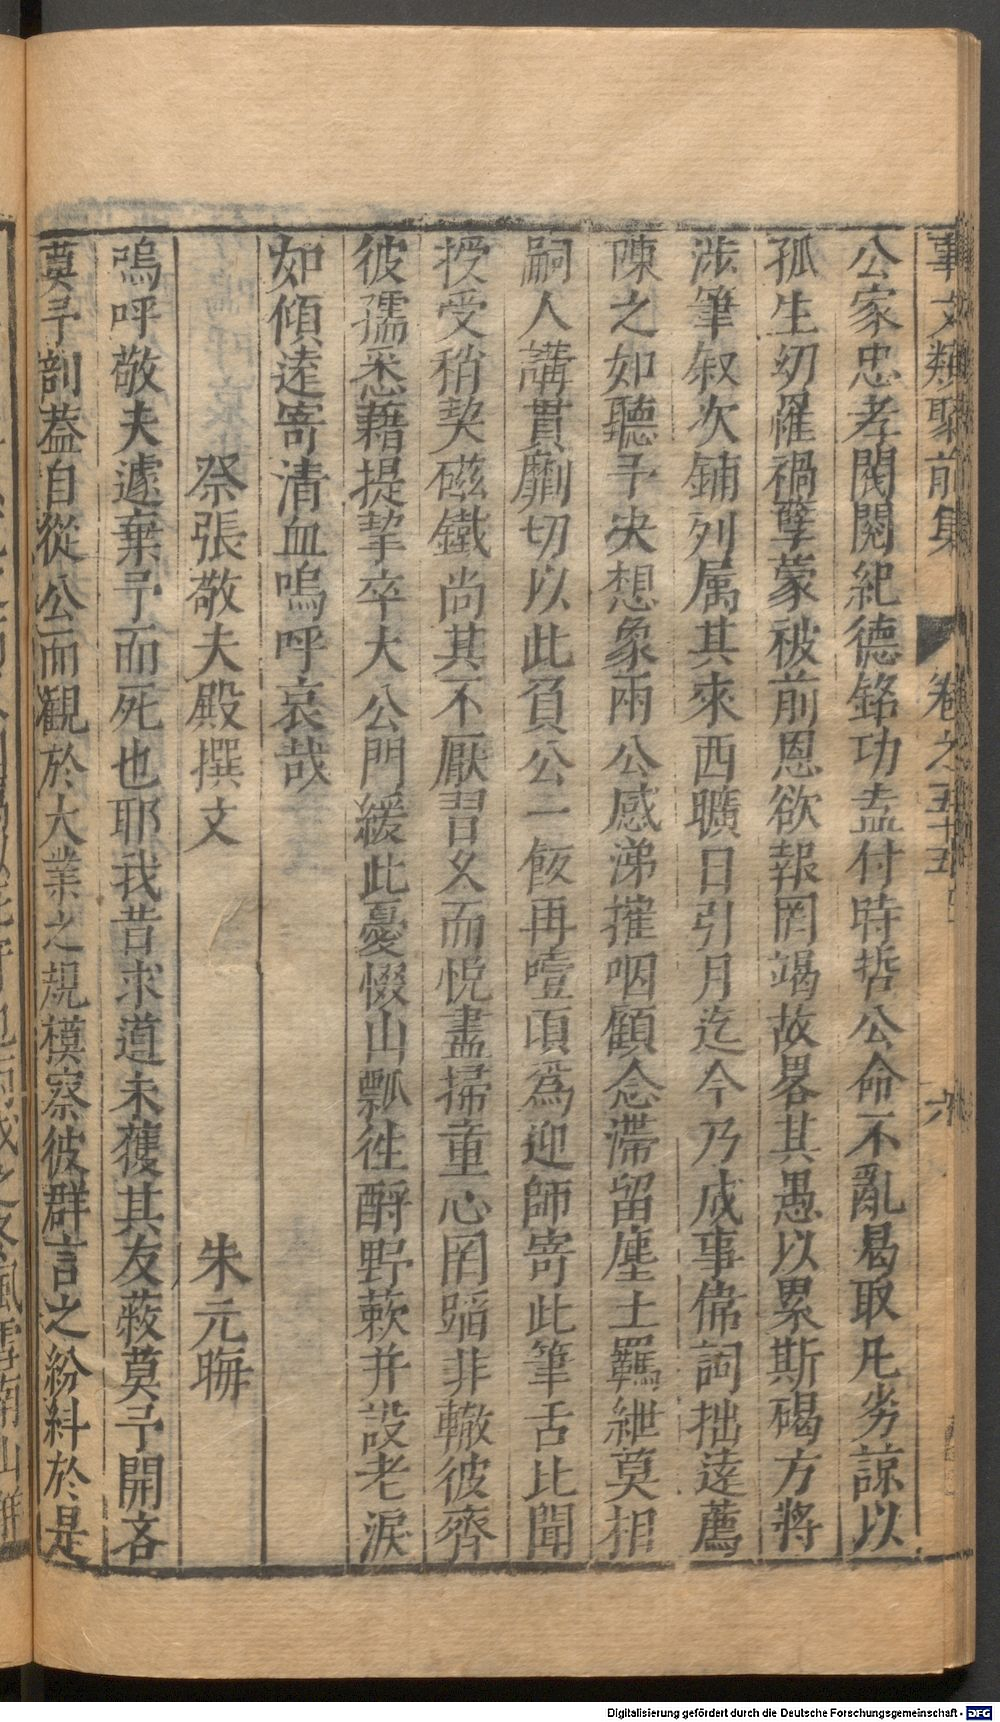 事文類聚前集 卷之五十五 六
公家忠孝閥閱紀德銘功盍付時哲公命不亂曷取凡劣諒以
孤生幼罹禍孽蒙被前恩欲報罔竭故畧其愚以累斯碣方將
涉筆叙次鋪列属其來西曠日引月迄今乃成事偉詞拙逹薦
陳之如聽予決想象兩公感涕摧咽顧念滯留塵土羈紲莫相
嗣人講貫劘切以此負公一飯再噎頃爲迎師寄此筆舌比聞
授受稍契磁鐵尚其不厭習久而悦盡掃童心罔蹈非轍彼齊
彼孺悉藉提挈卒大公門緩此憂惙山瓢徃酹野蔌并設老淚
如傾逹寄清血嗚呼哀哉
祭張敬夫殿撰文 朱元晦
嗚呼敬夫遽棄予而死也耶我昔求道未獲其友蔽莫予開吝
莫予剖蓋自從公而觀於大業之規模察彼群言之紛糾於是
Digitalisierung gefördert durch die Deutsche Forschungsgemeinschaft - DFG